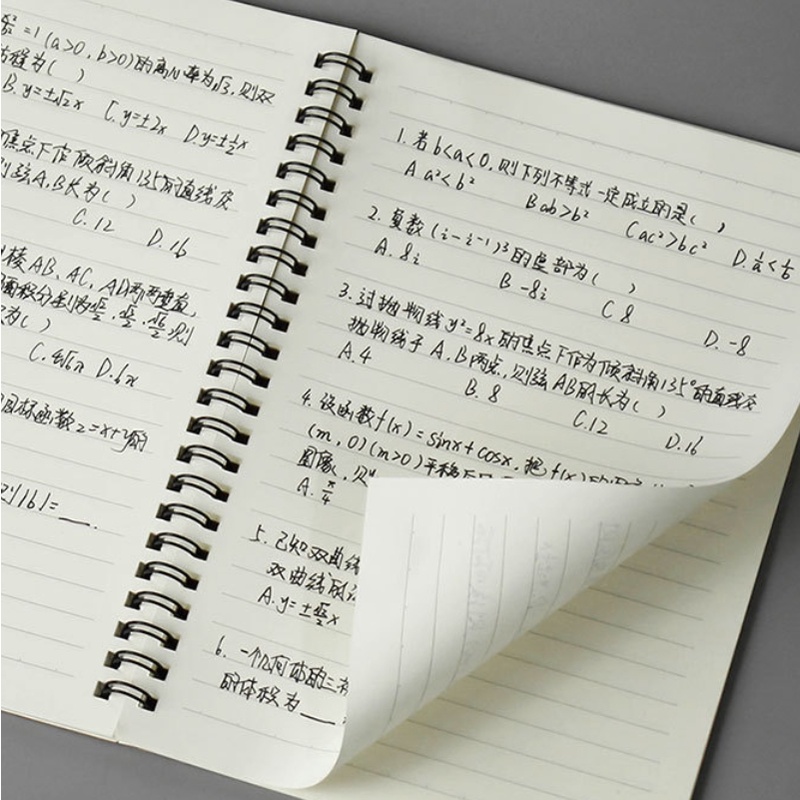 =1(a>0,b>0)的离心率为√3,则双
方程为( )
B.y=±√2x C.y=±2x D.y=±½x
焦点下作倾斜角135°的直线交
则弦A,B长为( )
C.12 D.16
棱AB、AC、AD两两垂直,
面积分别为
为( )
C.4√6π D.6π
目标函数z=x+y的
则|b|=__.
1.若b<a<0,则下列不等式一定成立的是( )
A a²<b² B ab>b² C ac²>bc² D.1/a<1/b
2.复数(i-i⁻¹)³的虚部为( )
A.8i B-8i C 8 D.-8
3.过抛物线y²=8x的焦点下作为倾斜角135°的直线交
抛物线于A,B两点,则弦AB的长为( )
A.4 B.8 C.12 D.16
4.设函数f(x)=sinx+cosx,把f(x)的
(m,0)(m>0)平移后
图像,则
A.π/4
5.已知双曲线
双曲线的
A.y=±√2/2x
6.一个几何体的三视
的体积为___.